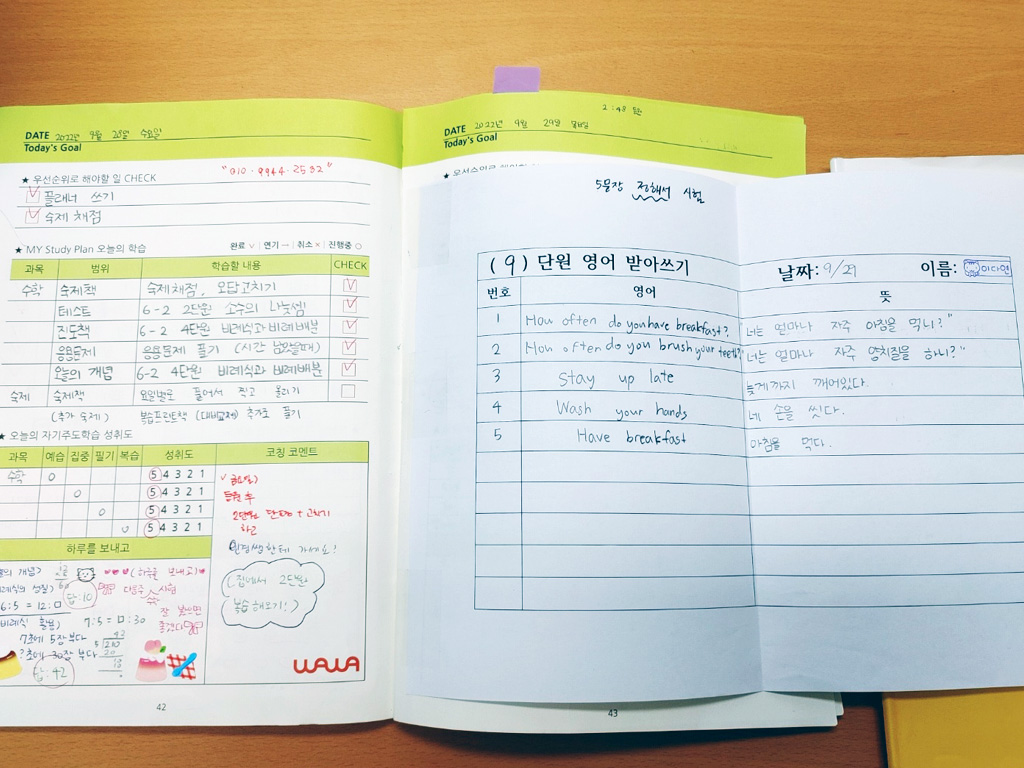 DATE 2022년 9월 28일 수요일
Today's Goal
"010·9944·2532"
★ 우선순위로 해야할 일 CHECK
플래너 쓰기
숙제 채점
★ MY Study Plan 오늘의 학습 완료 ∨ | 연기 → | 취소 × | 진행중 ○
과목 범위 학습할 내용 CHECK
수학 숙제책 숙제채점, 오답고치기
테스트 6-2 2단원 소수의 나눗셈
진도책 6-2 4단원 비례식과 비례배분
응용문제 응용문제 풀기 (시간 남았을때)
오늘의 개념 6-2 4단원 비례식과 비례배분
숙제 숙제책 요일별로 풀어서 찍고 올리기
(추가 숙제) 복습프린트책 풀기
★ 오늘의 자기주도학습 성취도
과목 예습 집중 필기 복습 성취도 코칭 코멘트
수학 ○ 5 4 3 2 1
○ 5 4 3 2 1
○ 5 4 3 2 1
○ 5 4 3 2 1
등원 후
2단원 + 고치기
하고
한테 가세요!
(집에서 2단원
복습 해오기!)
하루를 보내고
개념)
(하루를 보내고)
답:10
다음주 수학 시험
잘 봤으면
좋겠다
6:5=12:□
7:5=□:30
7초에 5장 부다
?초에 30장 부다
42
5 210
20
10
10
답:42
WAWA
42
2:48
DATE 2022년 9월 29일 목요일
Today's Goal
5문장 정해서 시험
(9) 단원 영어 받아쓰기 날짜: 9/29 이름: 이다연
번호 영어 뜻
1 How often do you have breakfast? "너는 얼마나 자주 아침을 먹니?"
2 How often do you brush your teeth? "너는 얼마나 자주 양치질을 하니?"
3 Stay up late 늦게까지 깨어있다.
4 Wash your hands 네 손을 씻다.
5 Have breakfast 아침을 먹다.
43